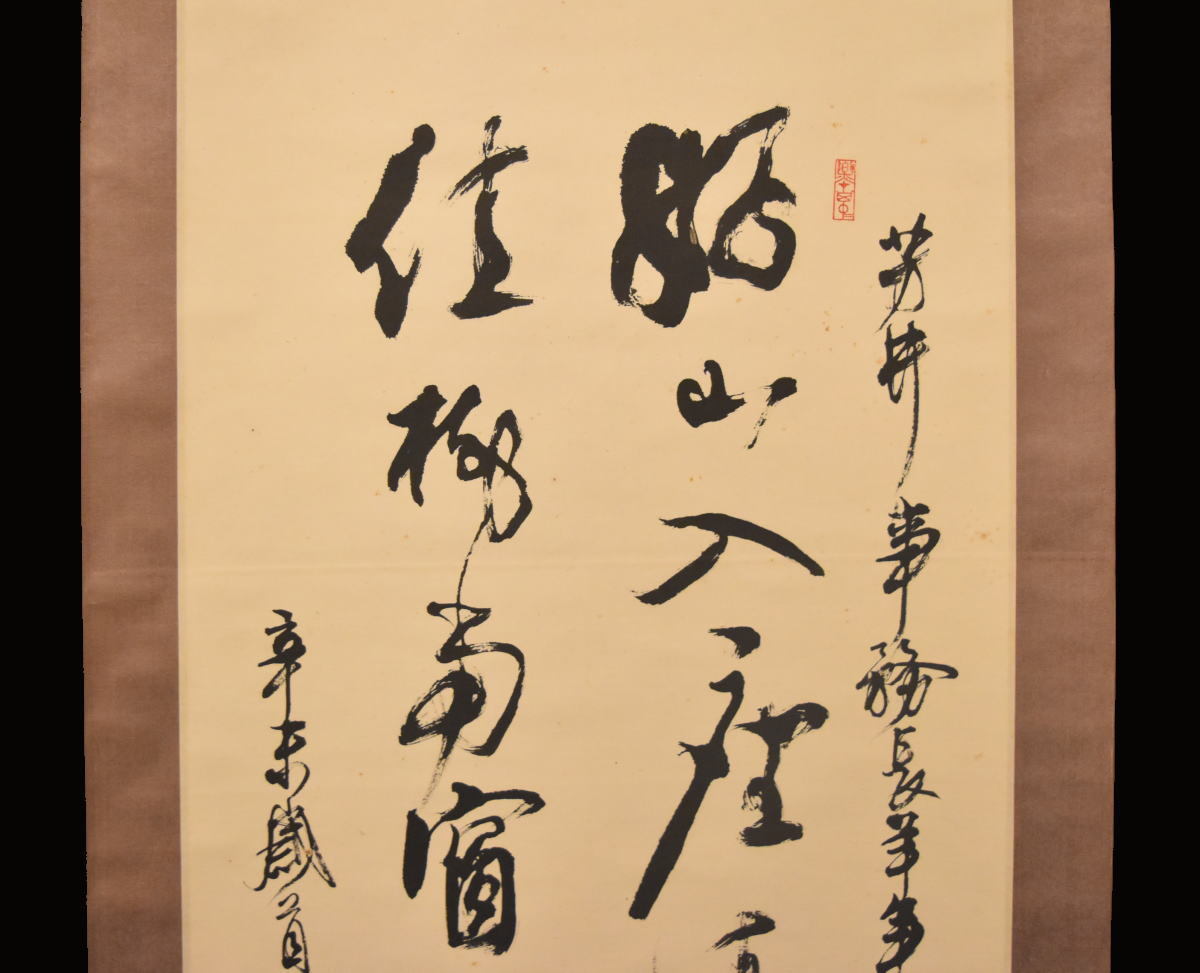 芳井事務長羊年
山入座
佳樹當窗
辛未歳首